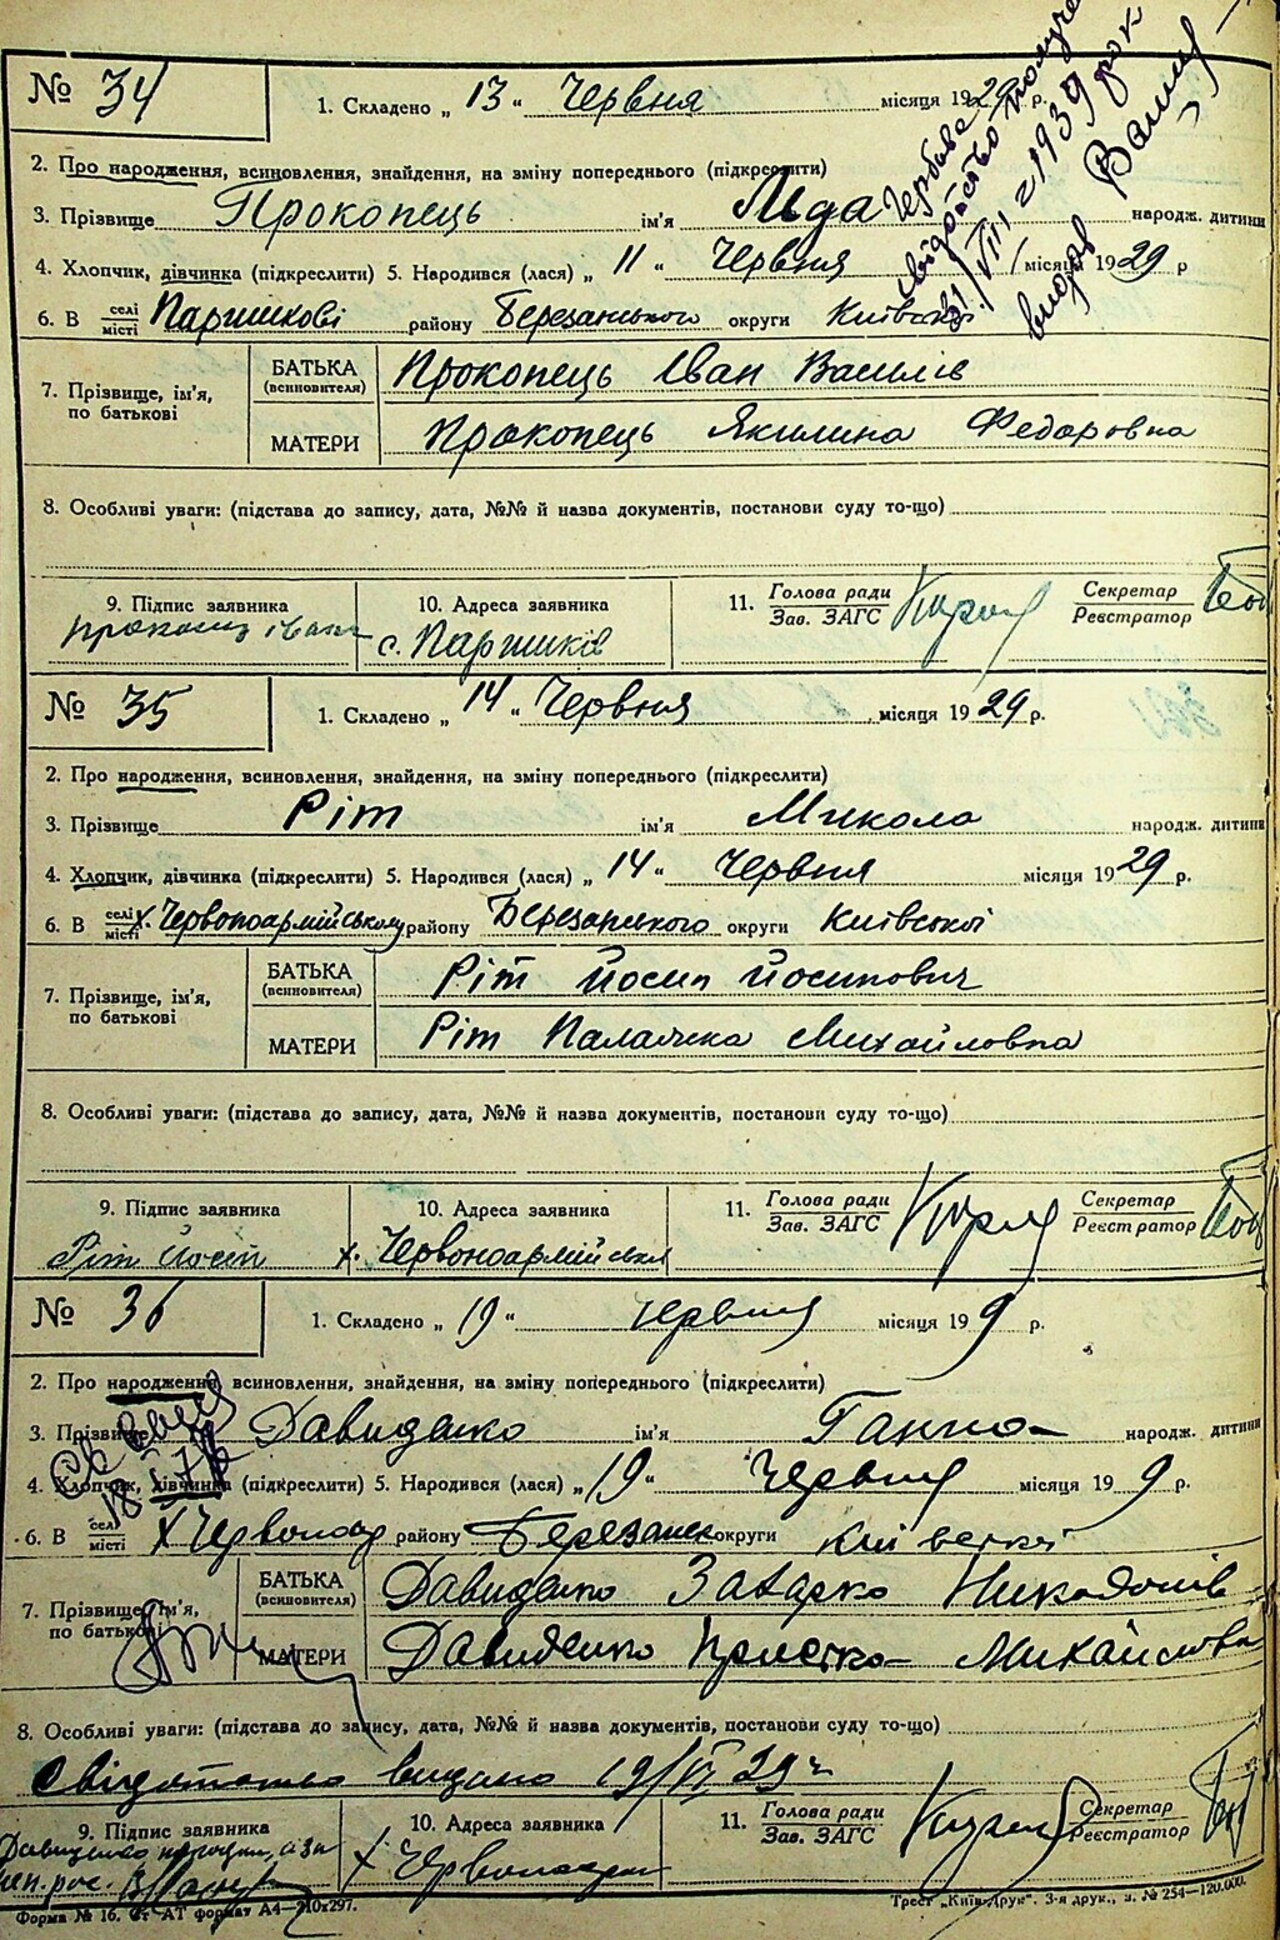 № 34
1. Складено „ 13 “ Червня місяця 1929 р.
2. Про народження, всиновлення, знайдення, на зміну попереднього (підкреслити)
3. Прізвище Прокопець ім'я Ида народж. дитини
4. Хлопчик, дівчинка (підкреслити) 5. Народився (лася) „ 11 “ Червня місяця 1929 р
6. В селі місті Паришкові району Березанського округи Київської
свідоцтво
31/VIII 1939 рок
видав
7. Прізвище, ім'я, по батькові
БАТЬКА (всиновителя) Прокопець Іван Василів
МАТЕРИ Прокопець Якилина Федоровна
8. Особливі уваги: (підстава до запису, дата, №№ й назва документів, постанови суду то-що)
9. Підпис заявника
10. Адреса заявника
11. Голова ради Зав. ЗАГС
Секретар Реєстратор
Прокопец іван
с. Паришків
№ 35
1. Складено „ 14 “ Червня місяця 1929 р.
2. Про народження, всиновлення, знайдення, на зміну попереднього (підкреслити)
3. Прізвище Ріт ім'я Микола народж. дитини
4. Хлопчик, дівчинка (підкреслити) 5. Народився (лася) „ 14 “ Червня місяця 1929 р.
6. В селі місті х. Червоноармійському району Березанського округи Київської
7. Прізвище, ім'я, по батькові
БАТЬКА (всиновителя) Ріт Йосип Йосипович
МАТЕРИ Ріт Палажка Михайловна
8. Особливі уваги: (підстава до запису, дата, №№ й назва документів, постанови суду то-що)
9. Підпис заявника
10. Адреса заявника
11. Голова ради Зав. ЗАГС
Секретар Реєстратор
Ріт Йосип
х. Червоноармійська
№ 36
1. Складено „ 19 “ червня місяця 19 9 р.
2. Про народження, всиновлення, знайдення, на зміну попереднього (підкреслити)
3. Прізвище Давиденко ім'я Ганна народж. дитини
4. Хлопчик, дівчинка (підкреслити) 5. Народився (лася) „ 19 “ Червня місяця 19 9 р.
6. В селі місті Х Червоноар району Березанск округи Київської
7. Прізвище, ім'я, по батькові
БАТЬКА (всиновителя) Давиденко Захарко
МАТЕРИ Давиденко Михайловна
8. Особливі уваги: (підстава до запису, дата, №№ й назва документів, постанови суду то-що)
свідотство видано 19/VI 29 г
9. Підпис заявника
10. Адреса заявника
11. Голова ради Зав. ЗАГС
Секретар Реєстратор
Давиденко
Форма № 16. Ст АТ формат А4—210х297.
Трест „Київ-Друк“. 3-я друк., з. № 254—120.000.